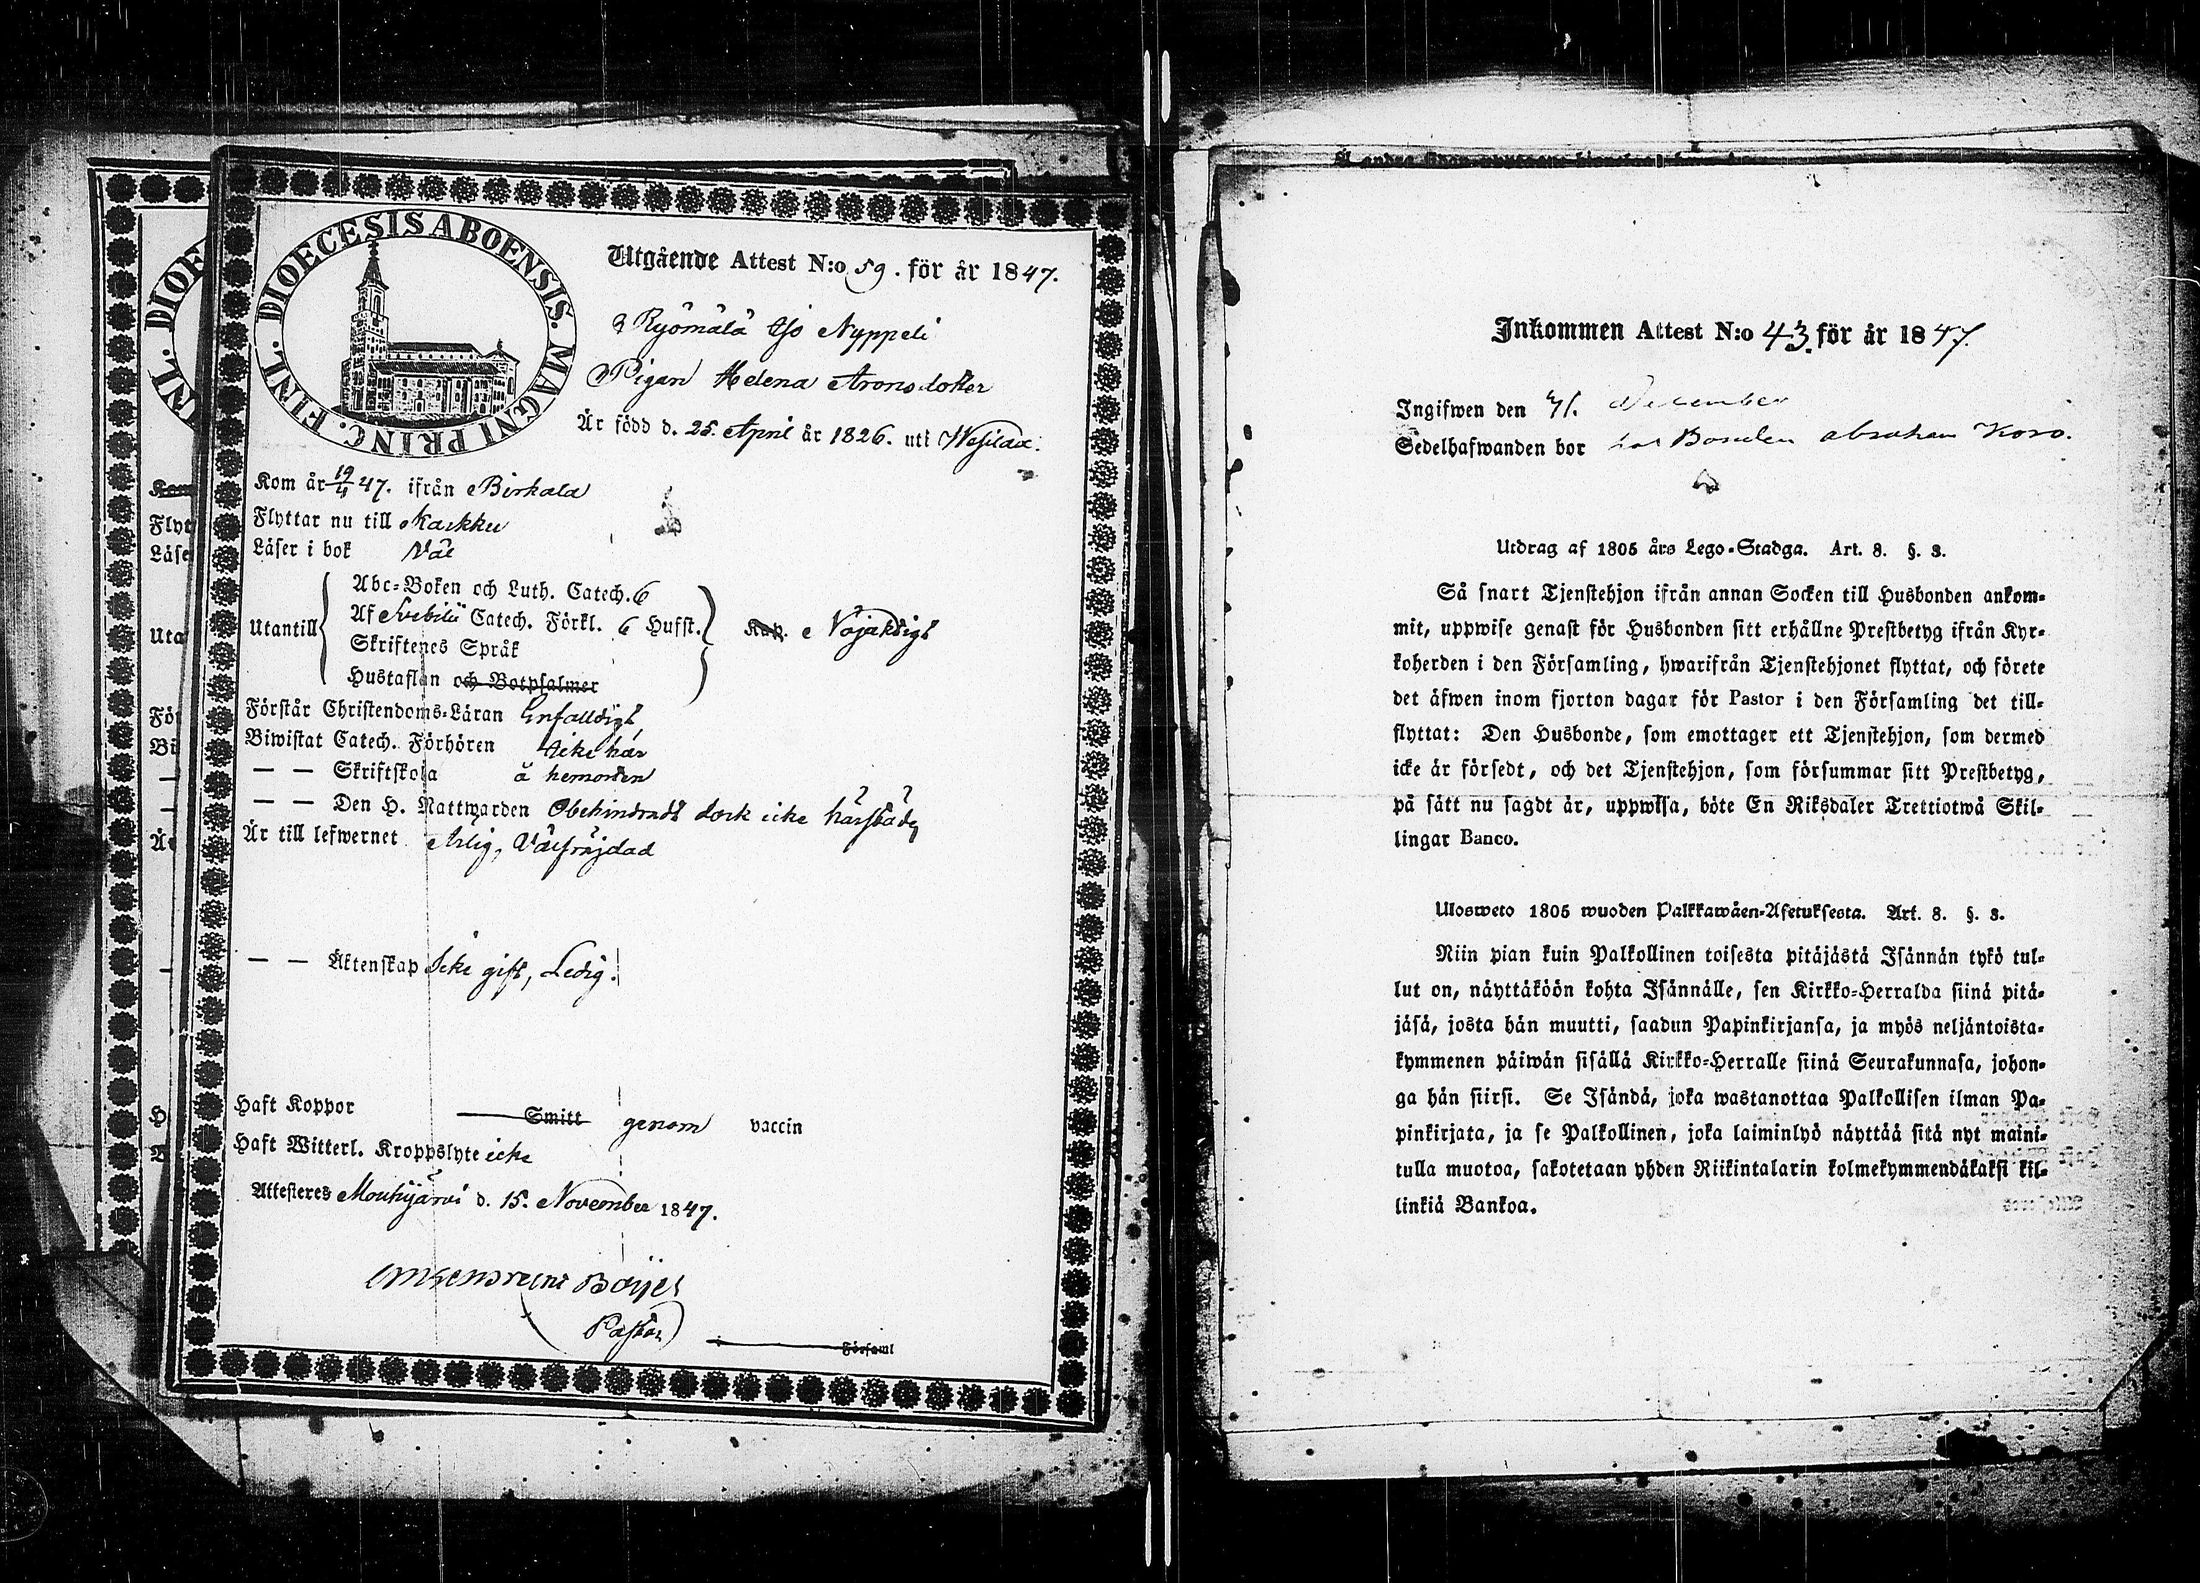 DIOECESIS ABOENSIS. MAGNI PRINC. FINL.
Utgående Attest N:o 59. för år 1847.
Ryömälä Nyppeli
Pigan Helena Aronsdotter
Är född d. 25. April år 1826. uti Wesilax.
Kom år 19/4 47. ifrån Birkala
Flyttar nu till Karkku
Läser i bok Väl
Utantill
Abc-Boken och Luth. Catech. 6
Af Svebilii Catech. Förkl. 6 Hufst.
Kap. Nöjaktigt
Skriftenes Språk
Hustaflan och Botpsalmer
Förstår Christendoms-Läran Enfalldigt
Biwistat Catech. Förhören icke här
— — Skriftskola å hemorten
— — Den H. Nattwarden Obehindradt dock icke härstädes
Är till lefwernet Ärlig, Välfräjdad
— — Äktenskap Icke gift, Ledig.
Haft Koppor Smitt genom vaccin
Haft Witterl. Kroppslyte icke
Attesteras Mouhijärvi d. 15. November 1847.
Pastor
Församl
DIOE
FINL.
Kom
Flyt
Läse
Uta
För
Bi
Är
H
Inkommen Attest N:o 43. för år 1847.
Ingifwen den December
Sedelhafwanden bor hos Bonden Abraham
Utdrag af 1805 års Lego-Stadga. Art. 8. §. 3.
Så snart Tjenstehjon ifrån annan Socken till Husbonden ankom-
mit, uppwise genast för Husbonden sitt erhållne Prestbetyg ifrån Kyr-
koherden i den Församling, hwarifrån Tjenstehjonet flyttat, och förete
det äfwen inom fjorton dagar för Pastor i den Församling det till-
flyttat: Den Husbonde, som emottager ett Tjenstehjon, som dermed
icke är försedt, och det Tjenstehjon, som försummar sitt Prestbetyg,
på sätt nu sagdt är, uppwisa, böte En Riksdaler Trettiotwå Skil-
lingar Banco.
Ulosweto 1805 wuoden Palkkawäen-Asetuksesta. Art. 8. §. 3.
Niin pian kuin Palkollinen toisesta pitäjästä Isännän tykö tul-
lut on, näyttäköön kohta Isännälle, sen Kirkko-Herralda siinä pitä-
jäsä, josta hän muutti, saadun Papinkirjansa, ja myös neljäntoista-
kymmenen päiwän sisällä Kirkko-Herralle siinä Seurakunnasa, johon-
ga hän siirsi. Se Isändä, joka wastanottaa Palkollisen ilman Pa-
pinkirjata, ja se Palkollinen, joka laiminlyö näyttää sitä nyt maini-
tulla muotoa, sakotetaan yhden Riikintalarin kolmekymmendäkaksi kil-
linkiä Bankoa.